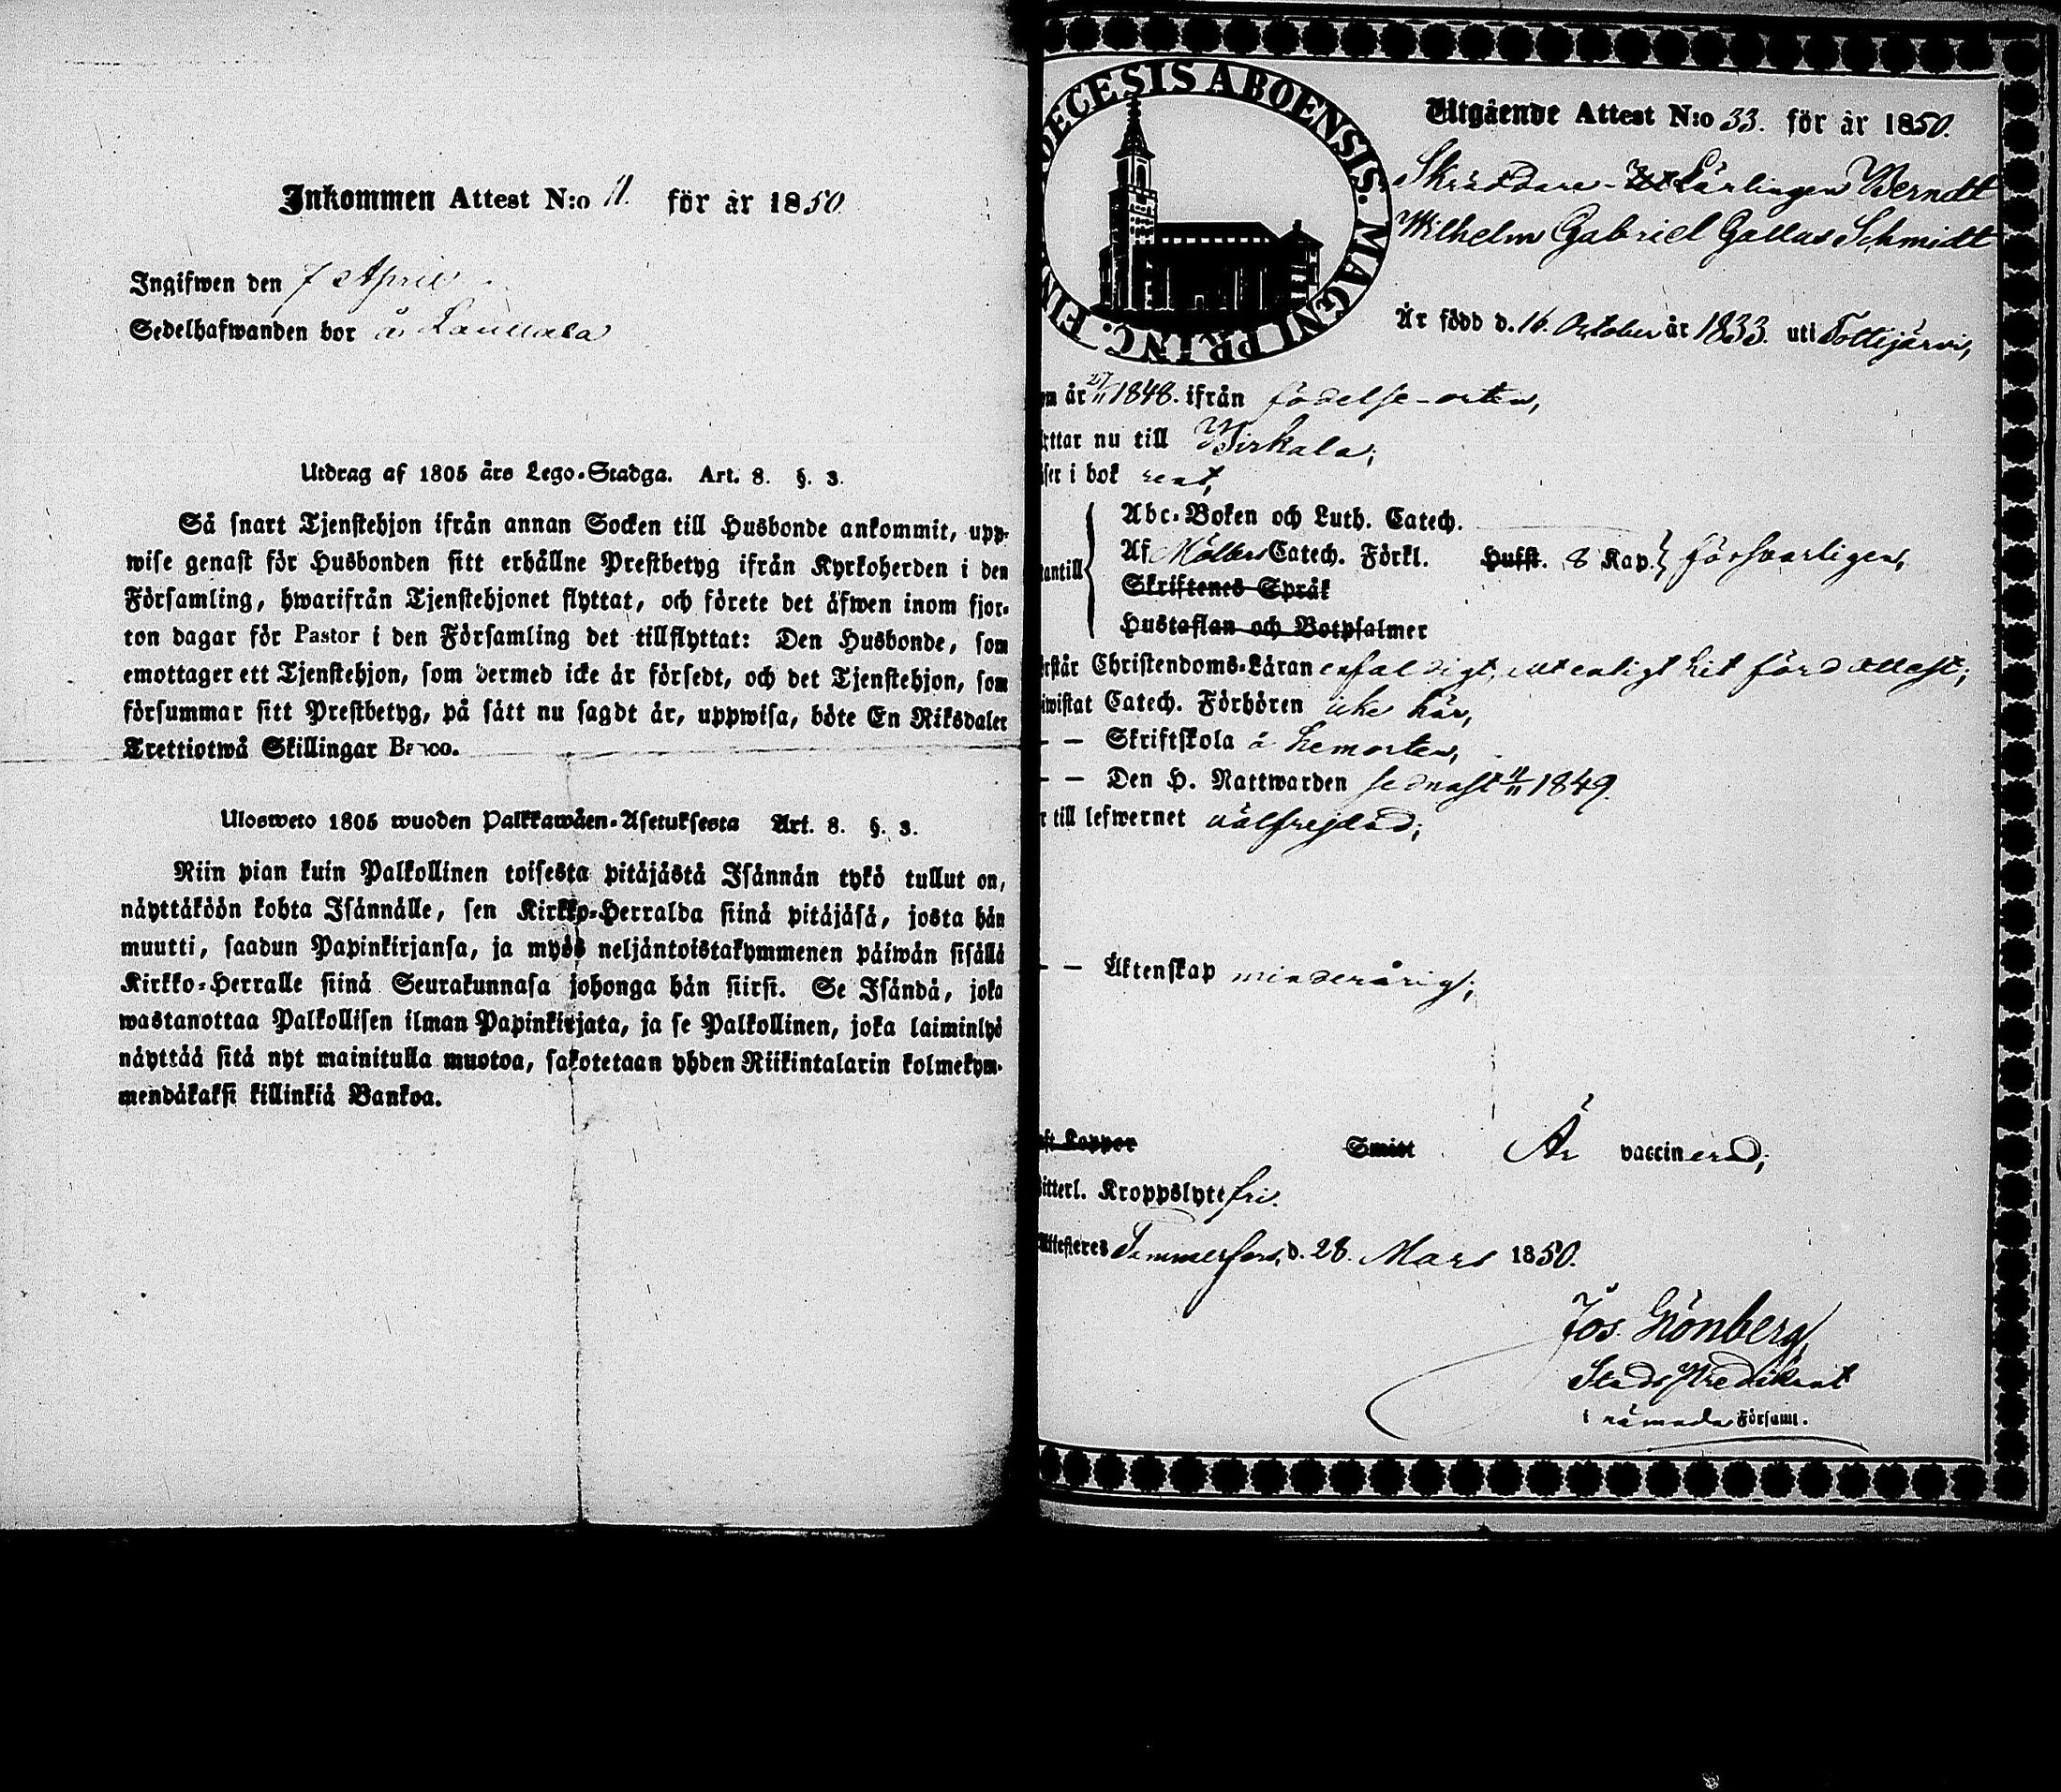 Inkommen Attest N:o 11. för år 1850
Ingifwen den 7 April
Sedelhafwanden bor å
Utdrag af 1805 års Lego-Stadga. Art. 8. §. 3.
Så snart Tjenstehjon ifrån annan Socken till Husbonde ankommit, upp-
wise genast för Husbonden sitt erhållne Prestbetyg ifrån Kyrkoherden i den
Församling, hwarifrån Tjenstehjonet flyttat, och förete det äfwen inom fjor-
ton dagar för Pastor i den Församling det tillflyttat: Den Husbonde, som
emottager ett Tjenstehjon, som dermed icke är försedt, och det Tjenstehjon, som
försummar sitt Prestbetyg, på sätt nu sagdt är, uppwisa, böte En Riksdaler
Trettiotwå Skillingar Banco.
Ulosweto 1805 wuoden Palkkawäen-Asetuksesta Art. 8. §. 3.
Niin pian kuin Palkollinen toisesta pitäjästä Isännän tykö tullut on,
näyttäköön kohta Isännälle, sen Kirkko-Herralda siinä pitäjäsä, josta hän
muutti, saadun Papinkirjansa, ja myös neljäntoistakymmenen päiwän sisällä
Kirkko-Herralle siinä Seurakunnasa johonga hän siirsi. Se Isändä, joka
wastanottaa Palkollisen ilman Papinkirjata, ja se Palkollinen, joka laiminlyö
näyttää sitä nyt mainitulla muotoa, sakotetaan yhden Riikintalarin kolmekym-
mendäkaksi killinkiä Bankoa.
DIOECESIS ABOENSIS. MAGNI PRINC. FIN
Utgående Attest N:o 33. för år 1850.
Skräddare-Lärlingen Werndt
Wilhelm Gabriel Gallus Schmidt
År född d. 16. October år 1833. uti Tottijärvi,
m år 27/11 1848. ifrån födelse-orten,
ttar nu till Birkala;
ser i bok rent,
Abc-Boken och Luth. Catech.
antill Af Möllers Catech. Förkl. Hufst. 8 Kap. försvarligen,
Skriftenes Språk
Hustaflan och Botpsalmer
rstår Christendoms-Läran enfaldigt, allt enligt hit förd attest;
iwistat Catech. Förhören icke här,
— — Skriftskola å hemorten,
— — Den H. Nattwarden sednast 11/11 1849.
r till lefwernet välfrejdad;
— — Äktenskap minderårig;
st Koppor Smitt Är vaccinerad;
itterl. Kroppslyte fri.
Attesteres Tammerfors, d. 28. Mars 1850.
Jos. Grönberg
Stads Predikant
i nämnde Församl.